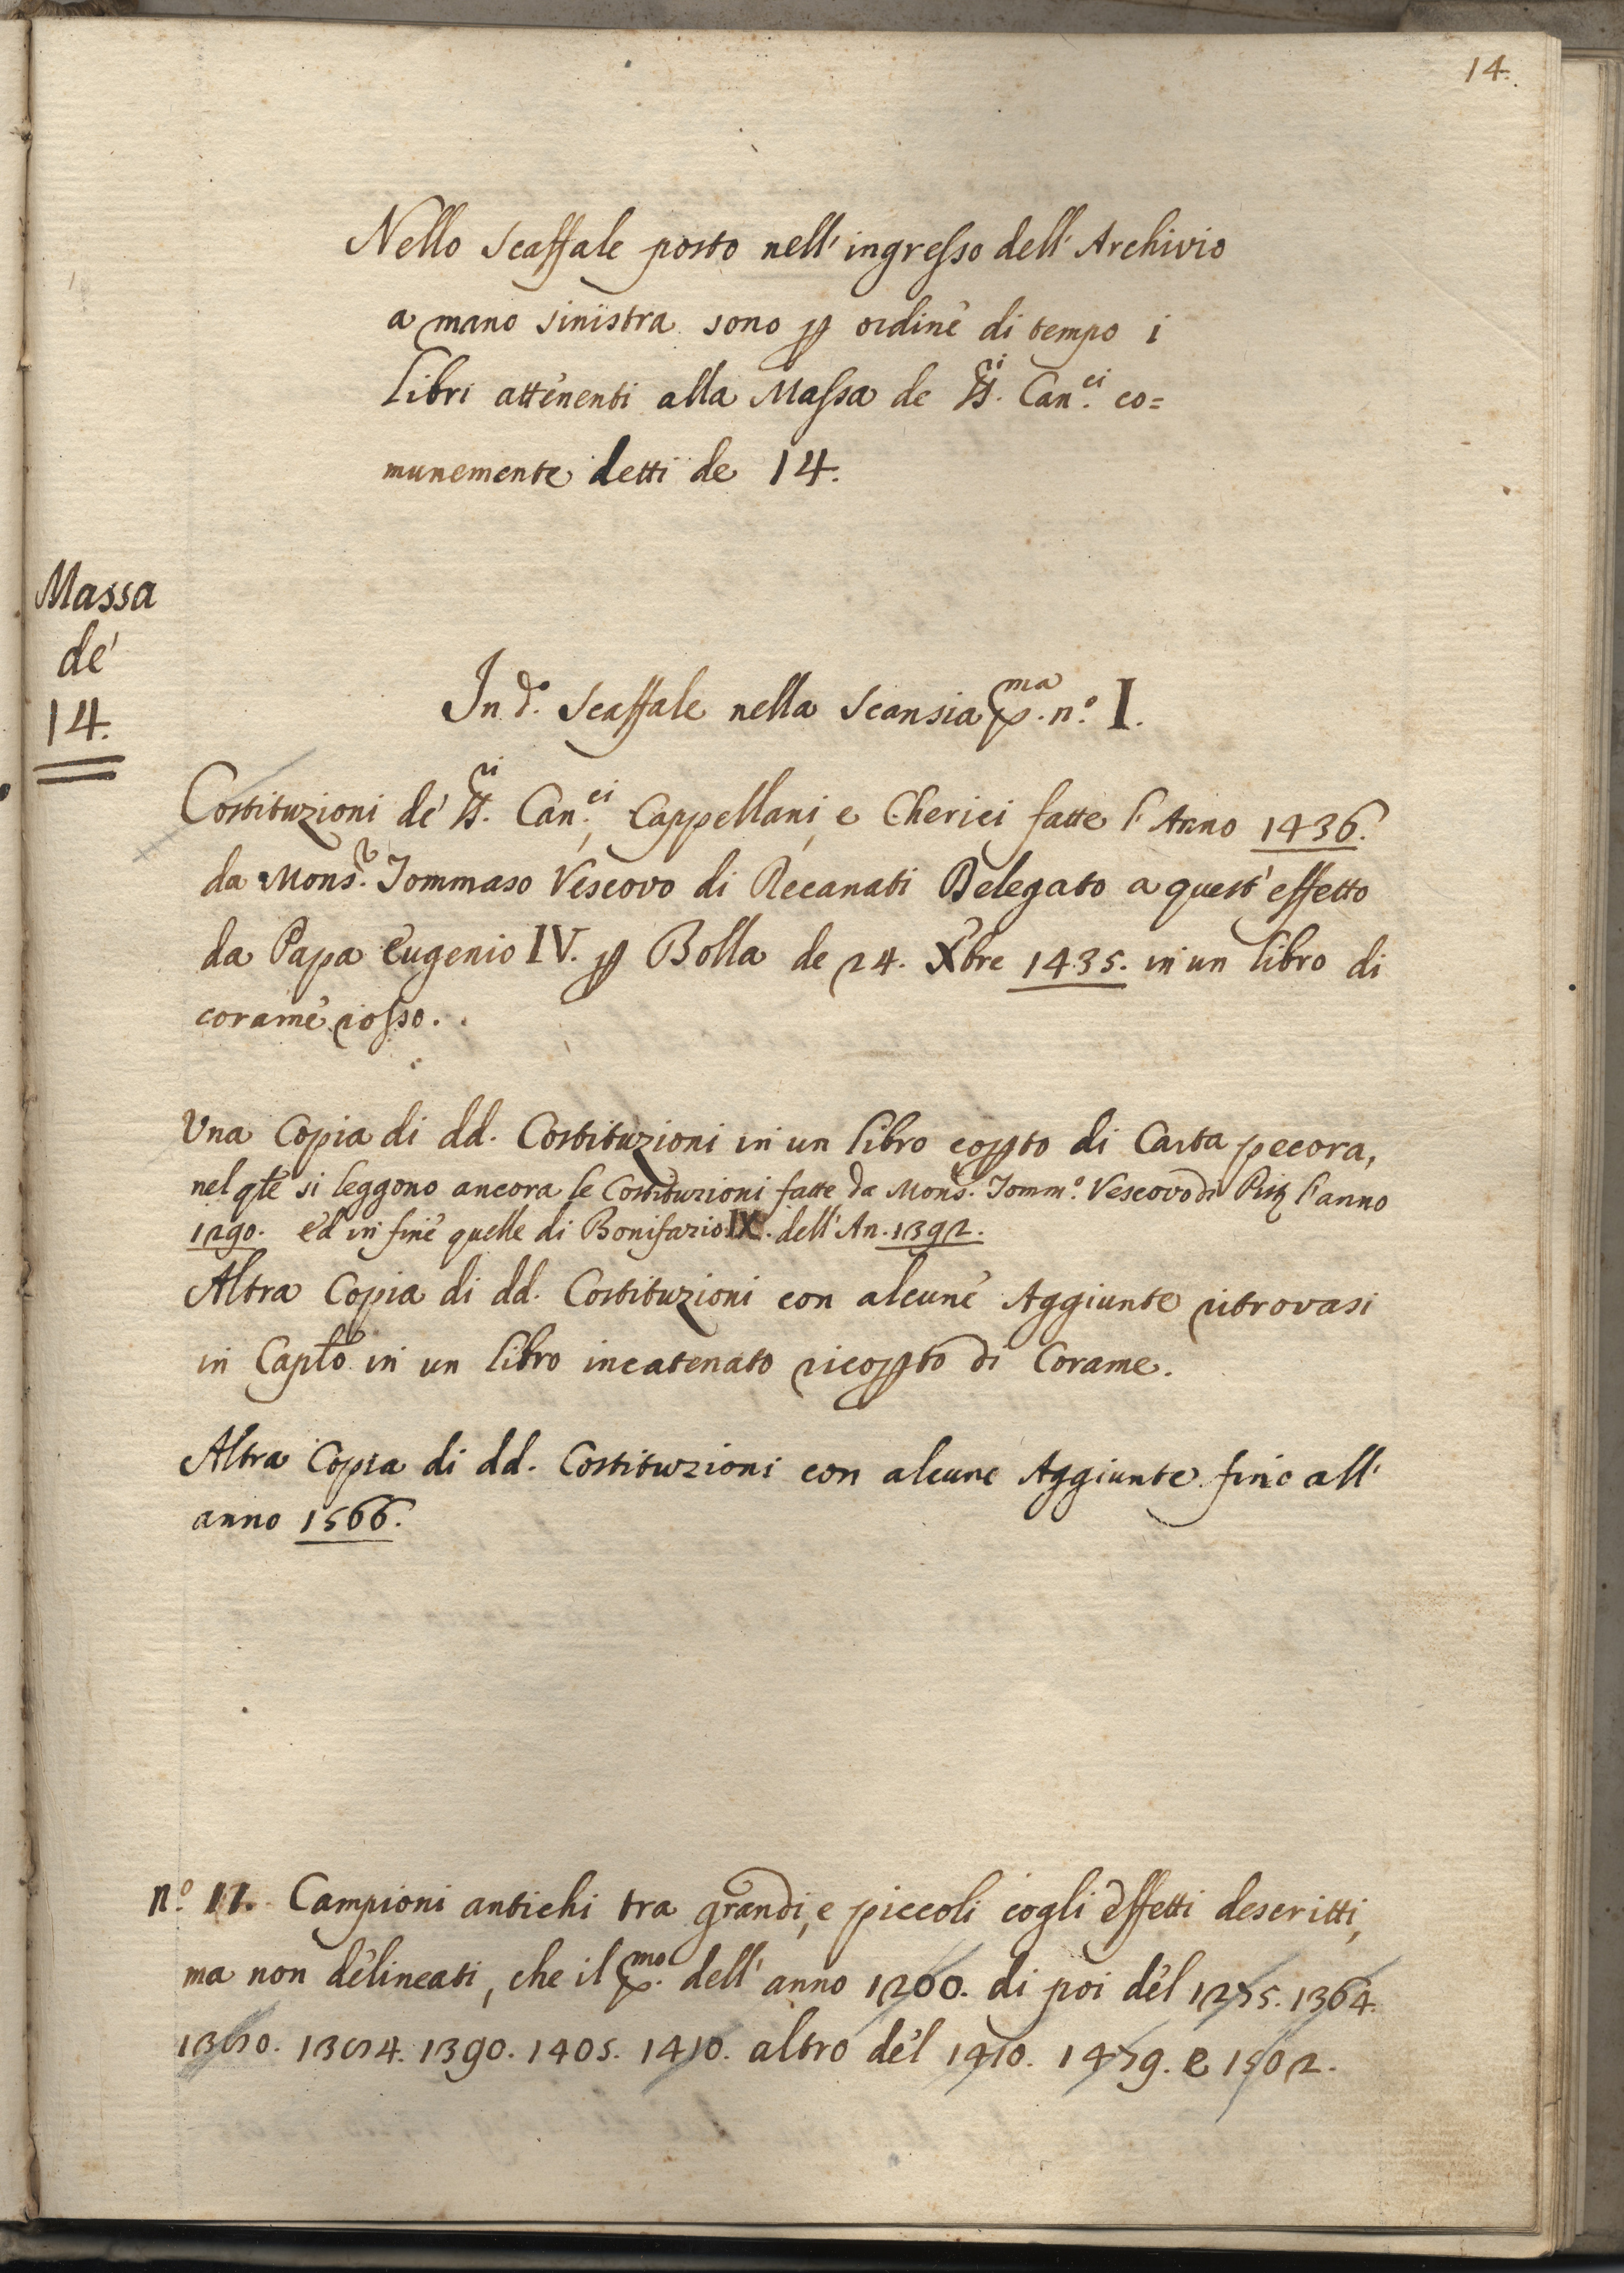 14.
Nello Scaffale posto nell' ingresso dell' Archivio
a mano sinistra sono p ordine di tempo i
Libri attenenti alla Massa de SS.ri Can.ci co=
munemente detti de 14.
Massa
de'
14.
In d.o Scaffale nella Scansia p.ma n.o I.
Costituzioni de' SS.ri Can.ci, Cappellani, e Cherici fatte l'Anno 1436.
da Mons.r Tommaso Vescovo di Recanati Delegato a quest' effetto
da Papa Eugenio IV. p Bolla de 24. Xbre 1435. in un libro di
corame rosso.
Una Copia di dd. Costituzioni in un libro copto di Carta pecora,
nel qle si leggono ancora le Costituzioni fatte da Mons.r Tomm.o Vescovo di l'anno
1290. ed in fine quelle di Bonifazio IX. dell' An. 1392.
Altra Copia di dd. Costituzioni con alcune Aggiunte ritrovasi
in Caplo in un libro incatenato ricopto di Corame.
Altra Copia di dd. Costituzioni con alcune Aggiunte fino all'
anno 1566.
n.o 11. Campioni antichi tra grandi, e piccoli cogli effetti descritti,
ma non delineati, che il p.mo dell' anno 1200. di poi del 1275. 1364.
1390. 1405. 1410. altro del 1410. 1479. e 1502.